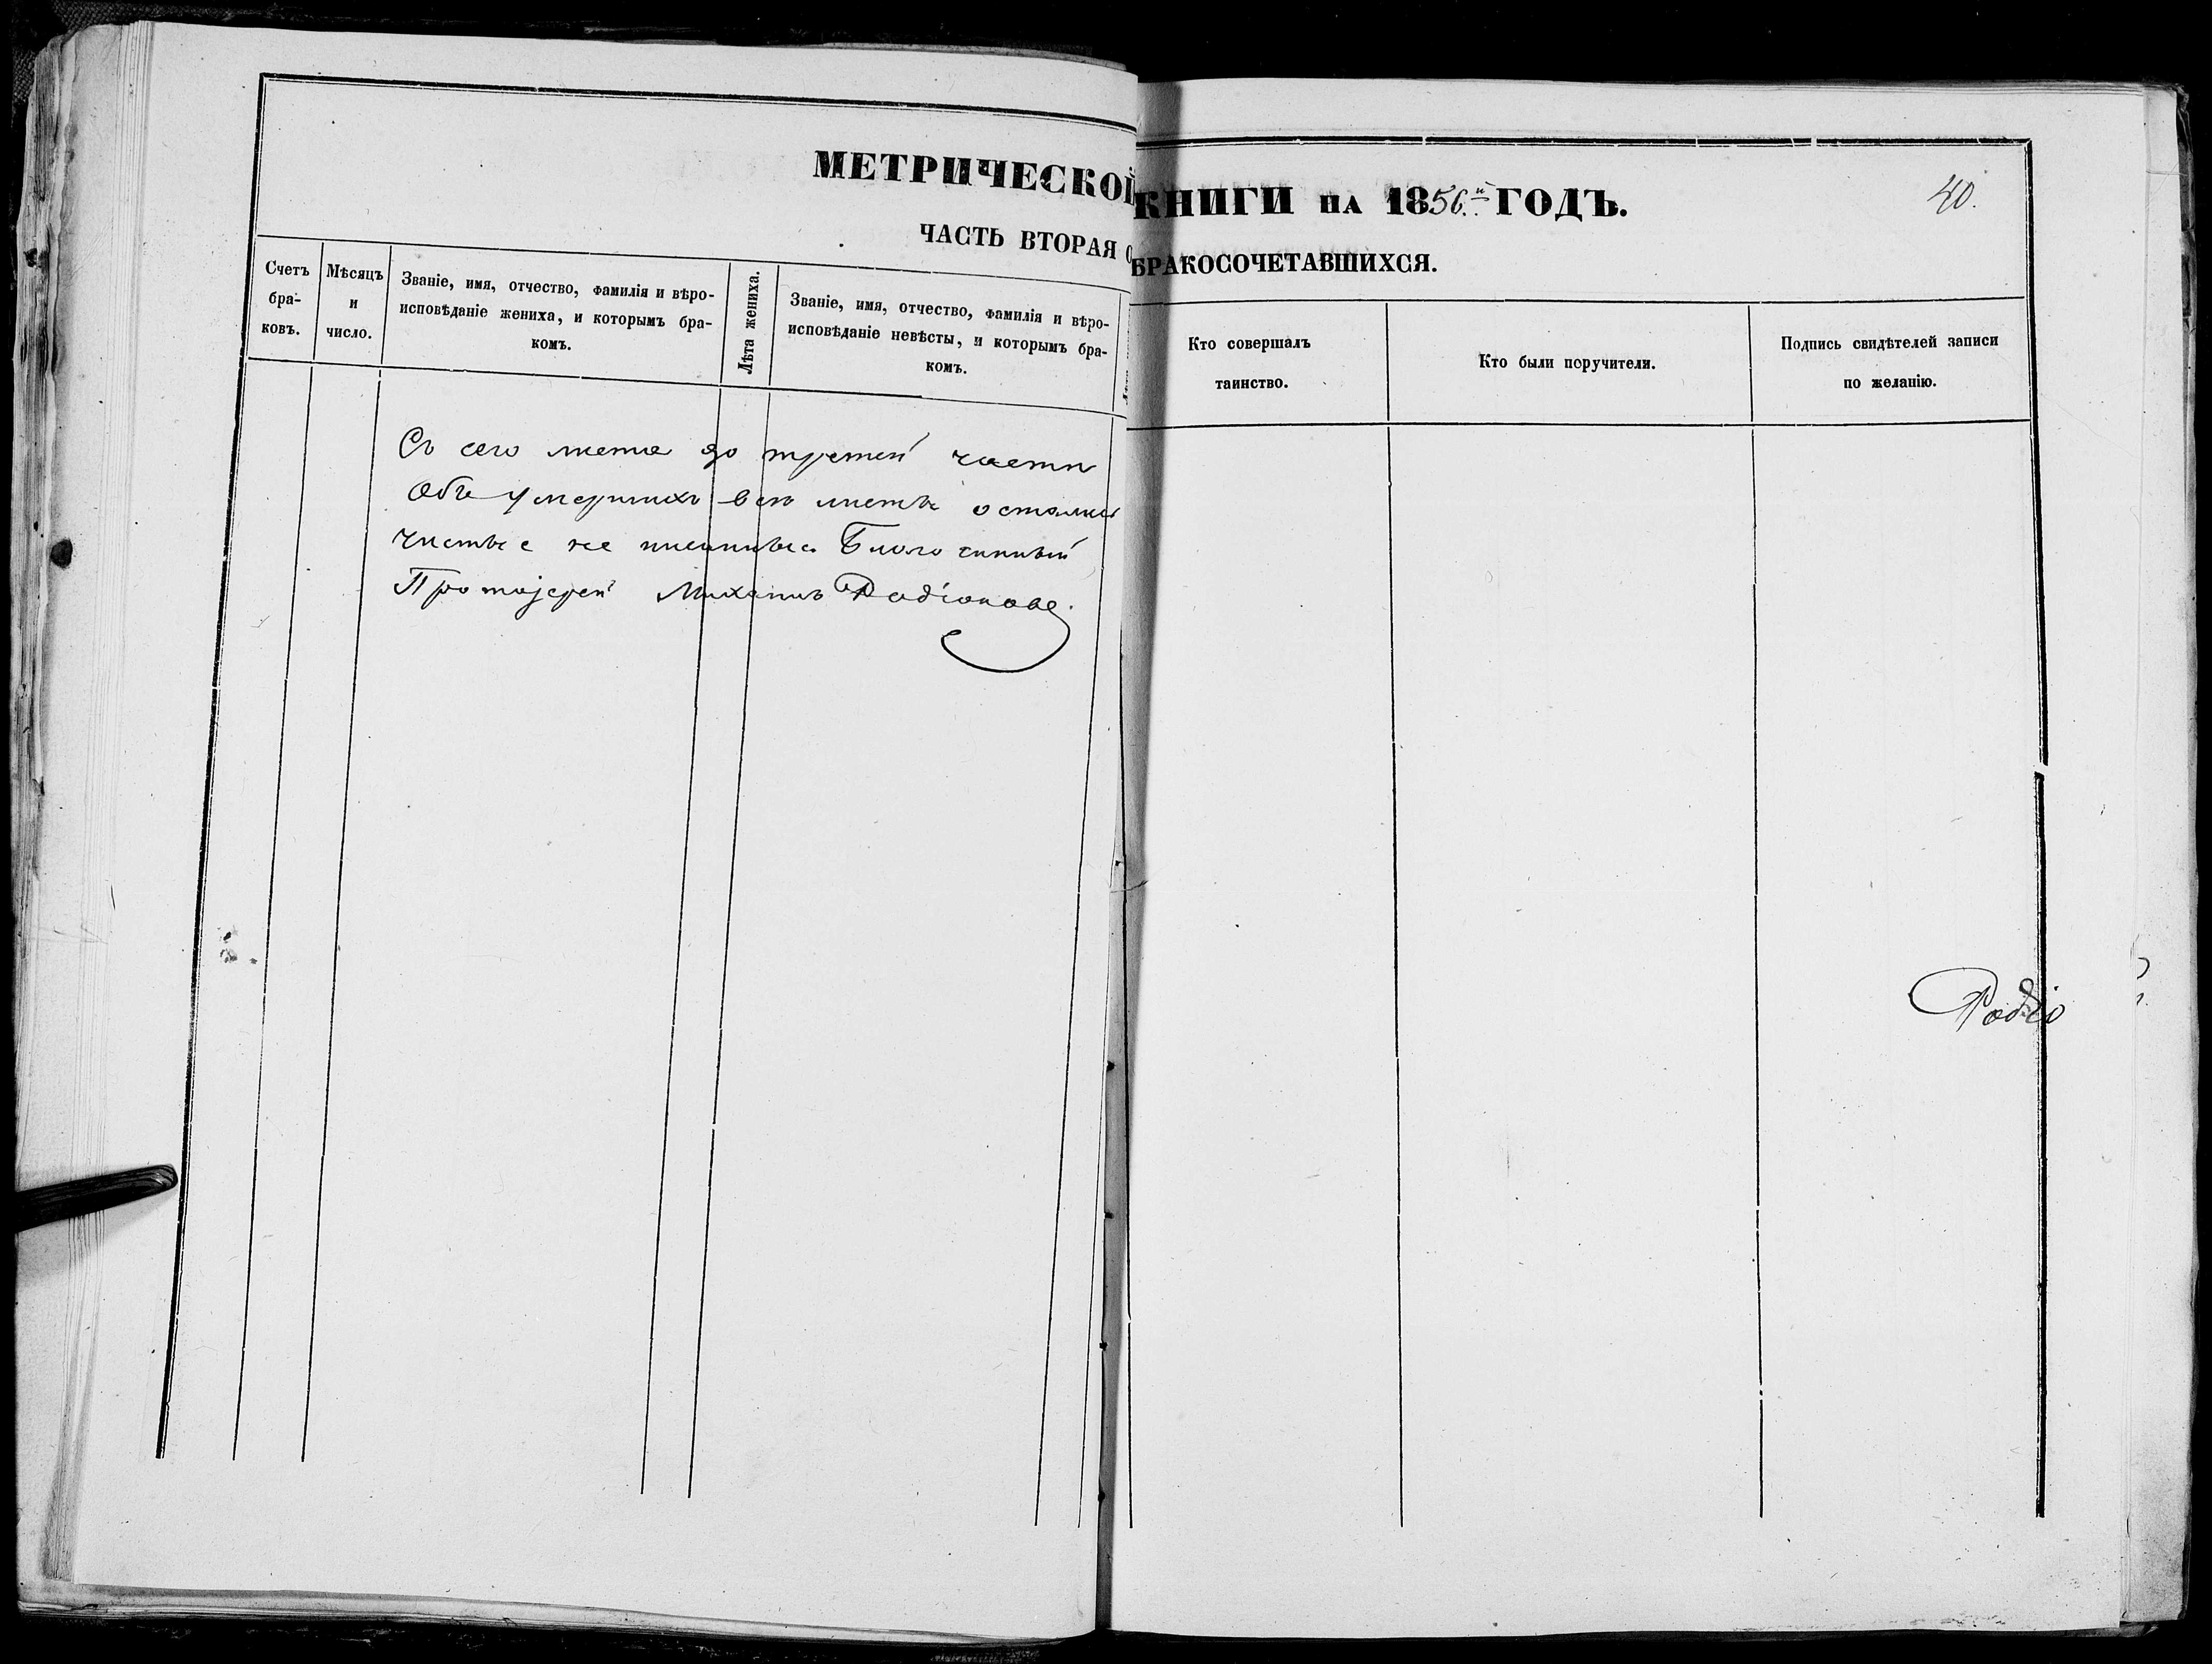 МЕТРИЧЕСКОЙ КНИГИ НА 1856.й ГОДЪ.
40.
ЧАСТЬ ВТОРАЯ О БРАКОСОЧЕТАВШИХСЯ.
Счетъ
бра-
ковъ.
Мѣсяцъ
и
число.
Званіе, имя, отчество, фамилія и вѣро-
исповѣданіе жениха, и которымъ бра-
комъ.
Лѣта жениха.
Званіе, имя, отчество, фамилія и вѣро-
исповѣданіе невѣсты, и которымъ бра-
комъ.
Кто совершалъ
таинство.
Кто были поручители.
Подпись свидѣтелей записи
по желанію.
Съ сего листа до третей части
Объ умершихъ всѣ листы остались
чистые не писанные. Благочинный
Протоіерей Михаилъ Родіоновъ.
Родіо